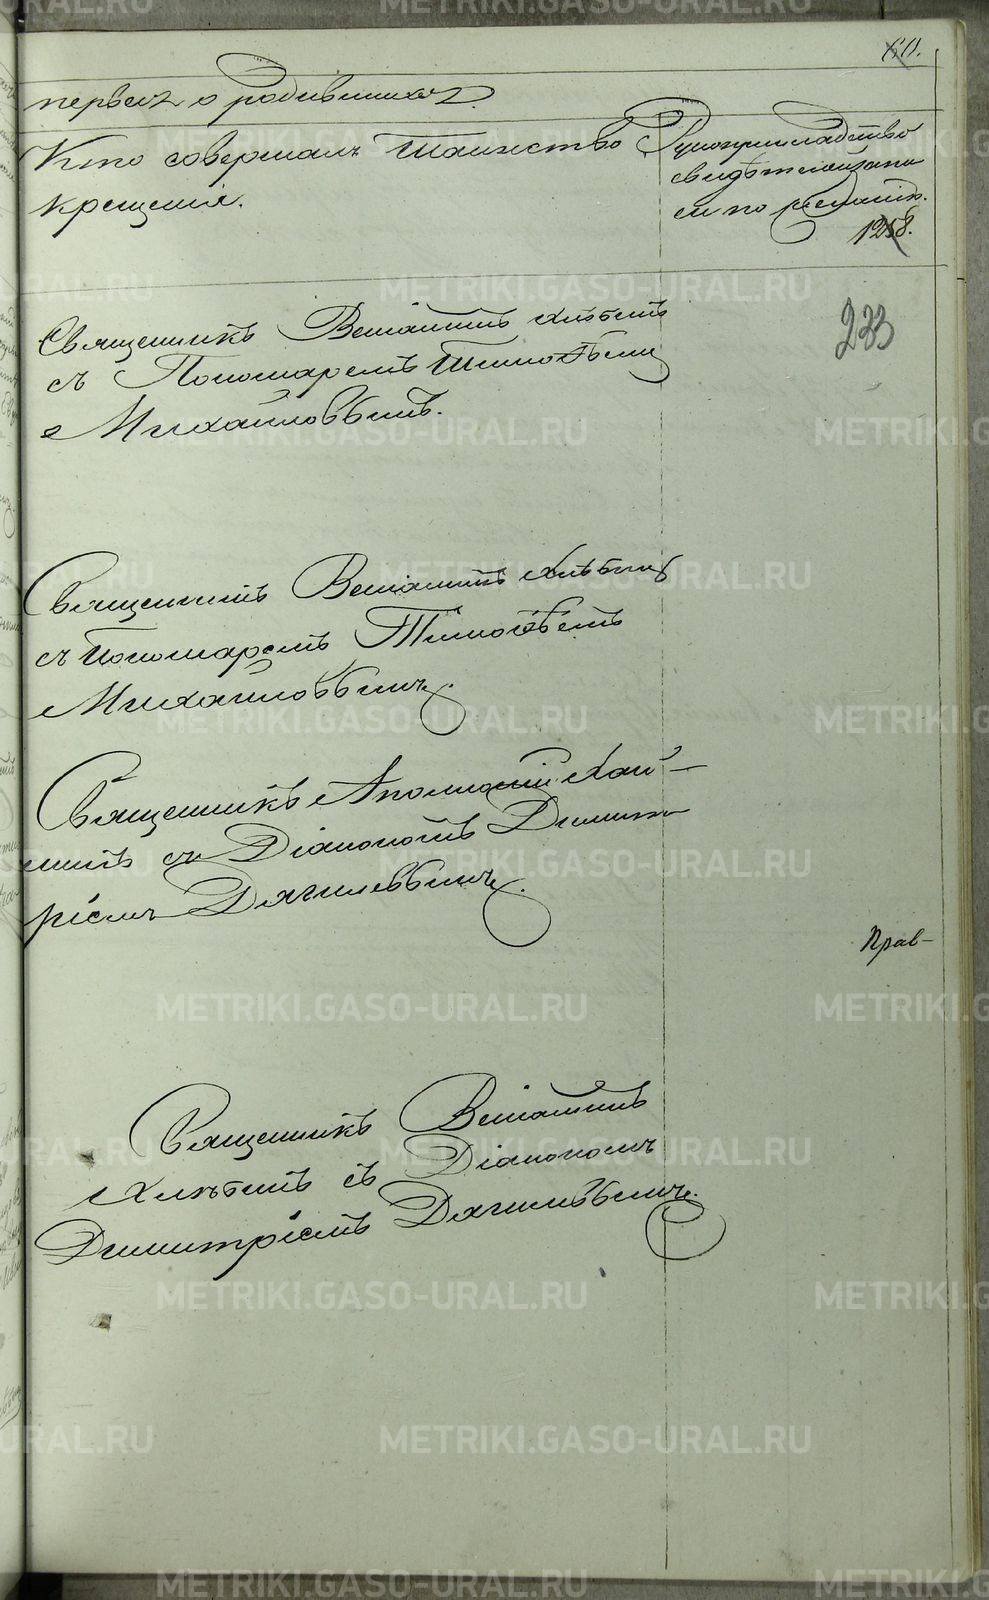 60.
первая о родившихся.
Кто совершалъ таинство
крещенія.
Рукоприкладство
свидѣтелей записи
по желанію.
1258.
233
Священникъ Веніаминъ Хлѣбинъ
съ Пономаремъ Тимоѳеемъ
Михайловымъ.
Священникъ Веніаминъ Хлѣбинъ
съ Пономаремъ Тимоѳеемъ
Михайловымъ.
Священникъ Аполлоній
съ Діакономъ Димит
ріемъ Дягилевымъ.
Прав-
Священникъ Веніаминъ
Хлѣбинъ съ Діакономъ
Димитріемъ Дягилевымъ.
METRIKI.GASO-URAL.RU